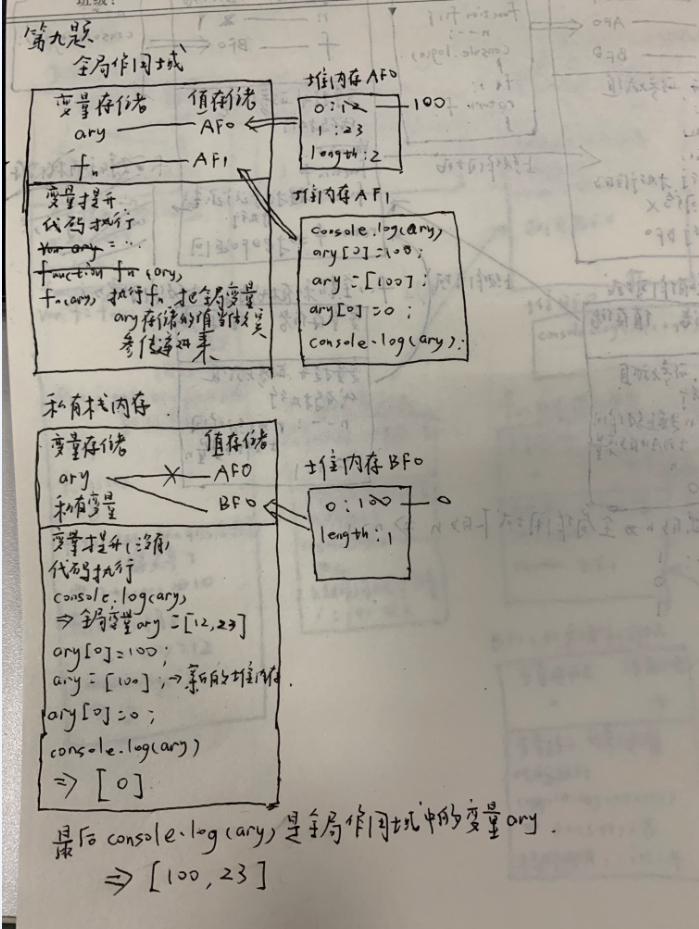 第九题
全局作用域
变量存储 值存储
ary AF0
fn AF1
变量提升
代码执行
var ary = ...
function fn(ary)
fn(ary) 执行fn 把全局变量
ary存储的值当做实
参传递进来
堆内存AF0
0:12 100
1:23
length:2
堆内存AF1
console.log(ary)
ary[0]=100;
ary=[100];
ary[0]=0;
console.log(ary);
私有栈内存
变量存储 值存储
ary AF0
私有变量 BF0
变量提升(没有)
代码执行
console.log(ary)
⇒全局变量ary=[12,23]
ary[0]=100;
ary=[100];→新的堆内存.
ary[0]=0;
console.log(ary)
⇒[0]
堆内存BF0
0:100 0
length:1
最后console.log(ary)是全局作用域中的变量ary.
⇒[100,23]